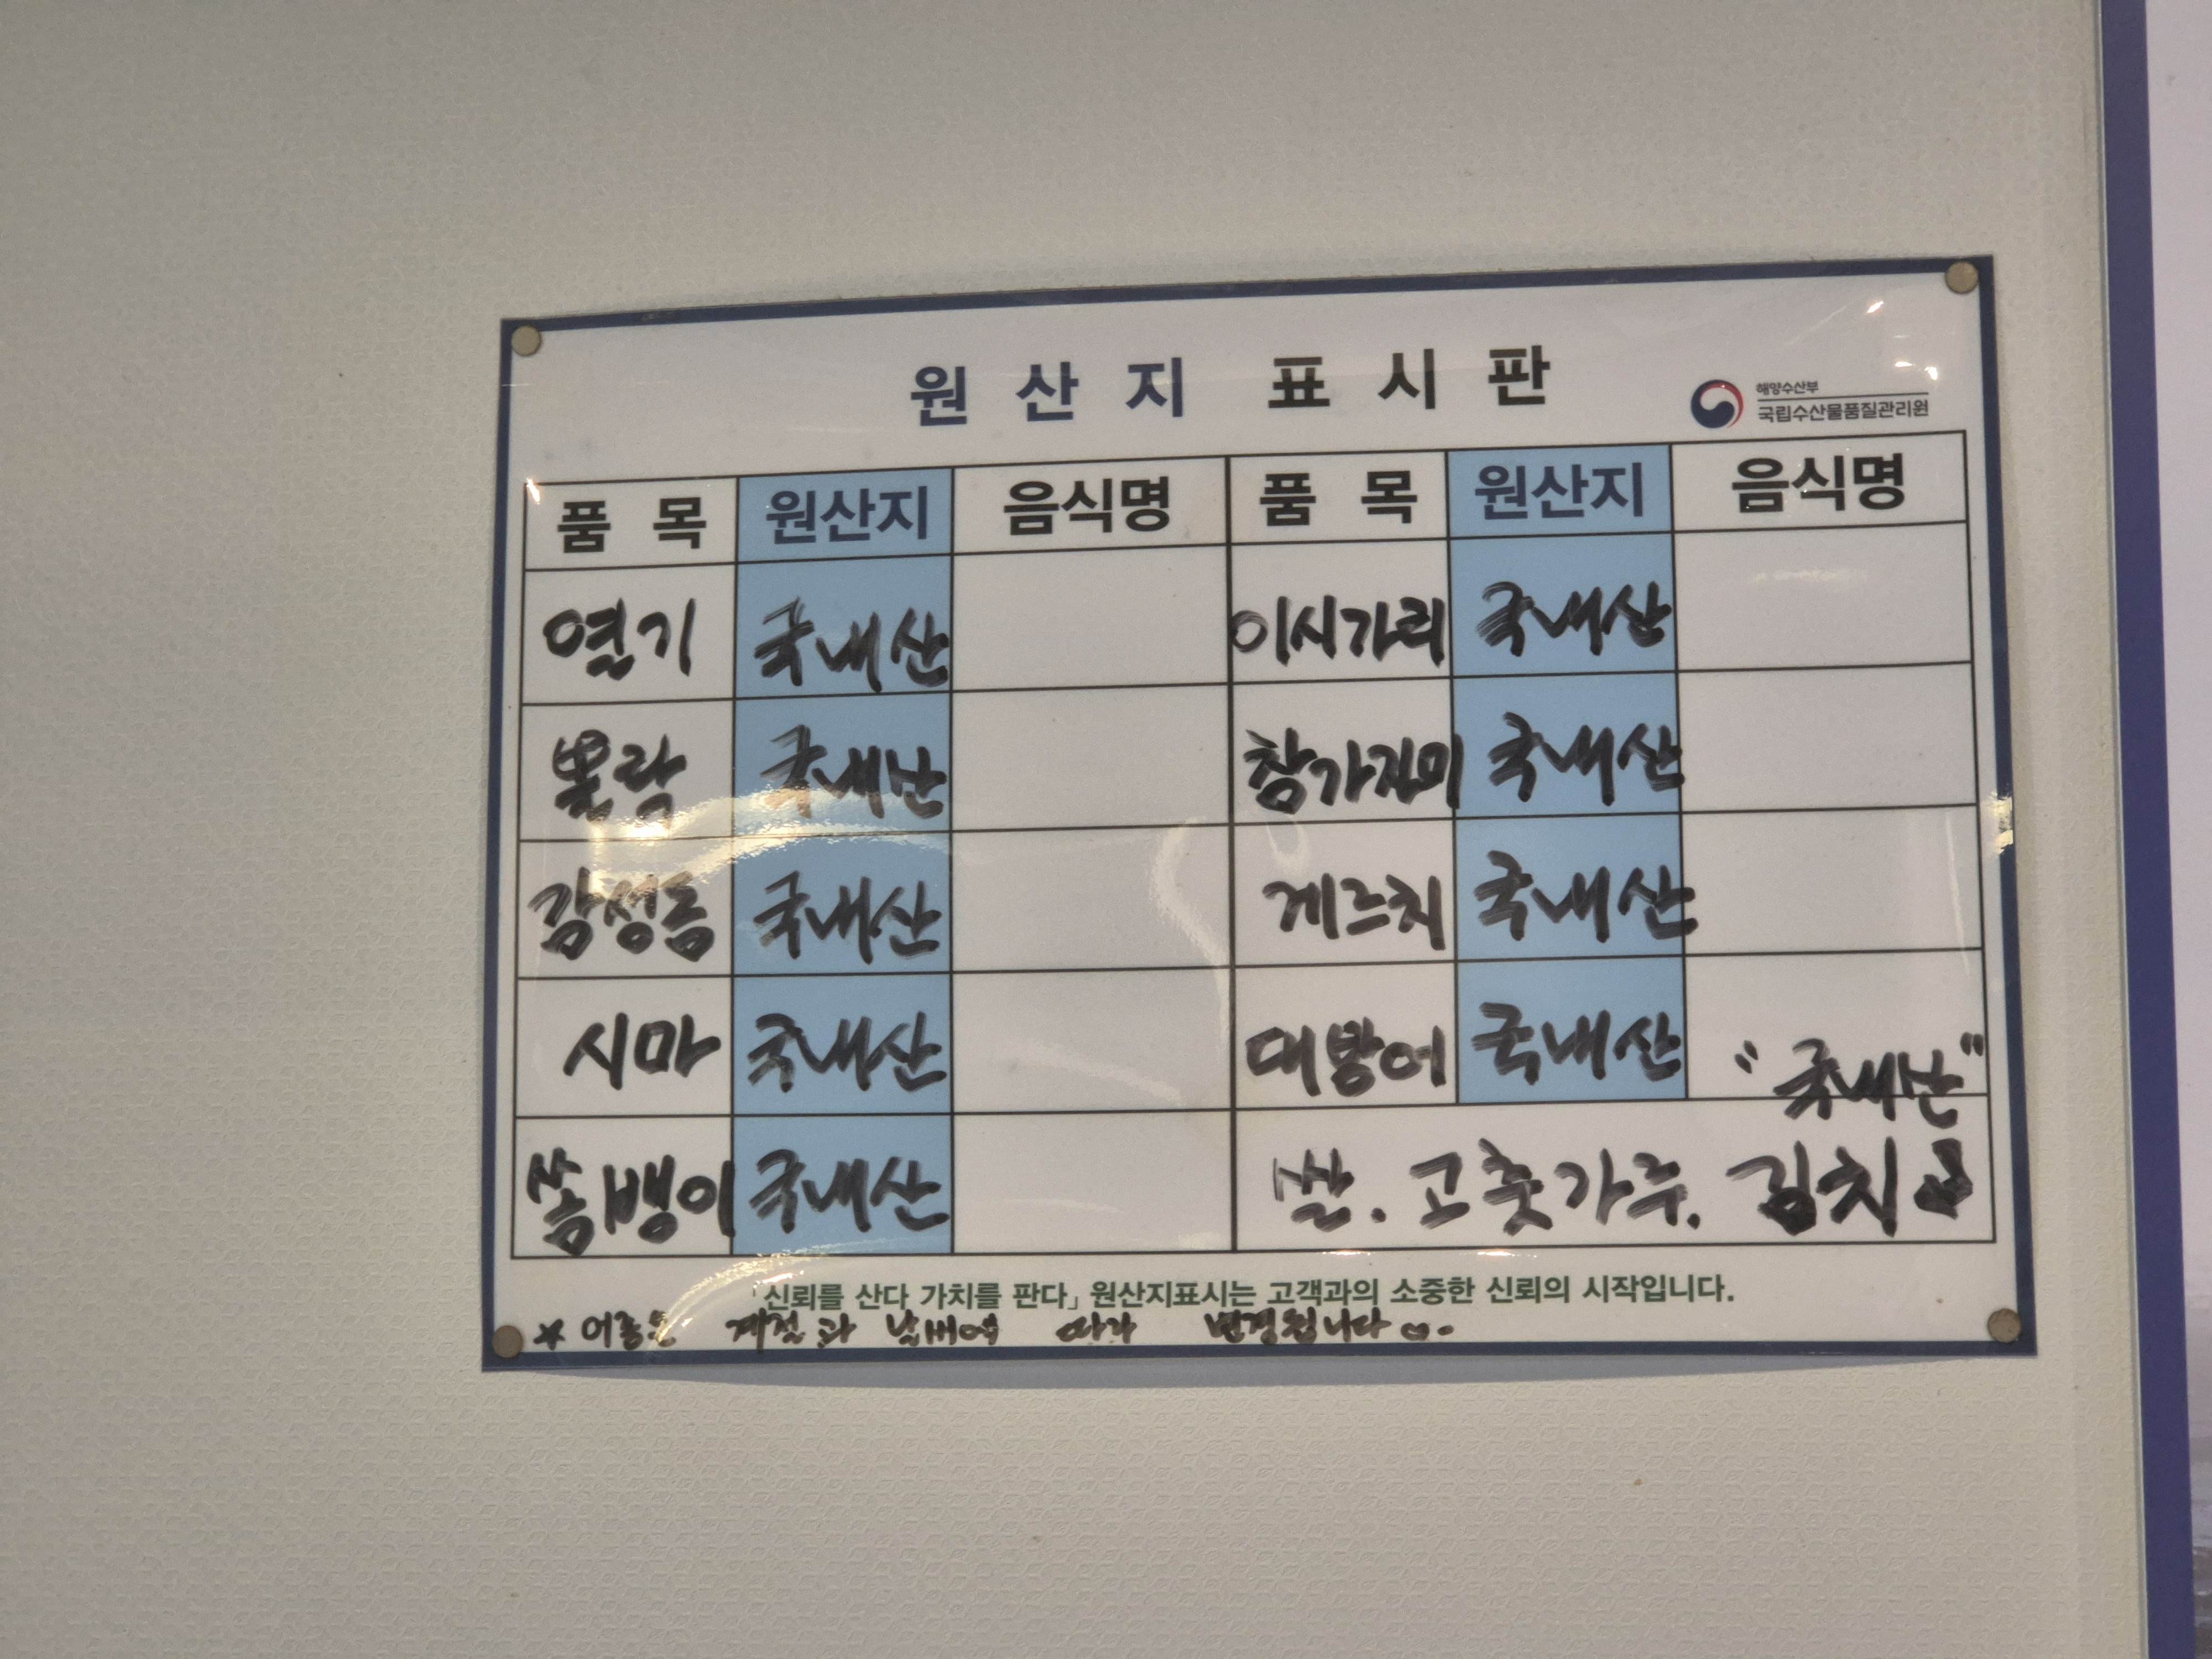 원산지 표시판
해양수산부
국립수산물품질관리원
품목 원산지 음식명 품목 원산지 음식명
열기 국내산 이시가리 국내산
뽈락 국내산 참가자미 국내산
감성돔 국내산 게르치 국내산
시마 국내산 대방어 국내산 "국내산"
쏨뱅이 국내산 쌀. 고춧가루. 김치
「신뢰를 산다 가치를 판다」 원산지표시는 고객과의 소중한 신뢰의 시작입니다.
* 어종은 계절과 날씨에 따라 변경됩니다